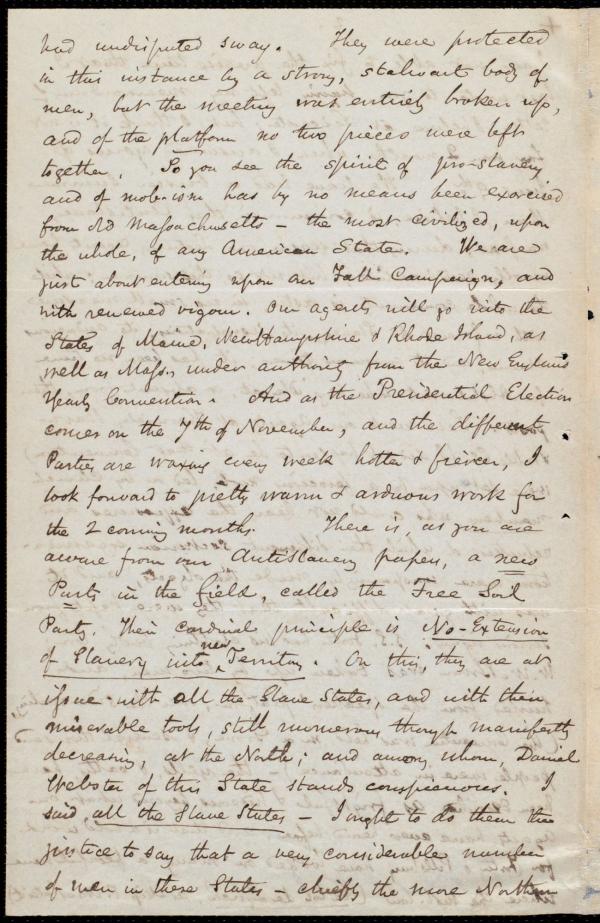 had undisputed sway. They were protected
in this instance by a strong, stalwart body of
men, but the meeting was entirely broken up,
and of the platform no two pieces were left
together. So you see the spirit of pro-slavery
and of mob-ism has by no means been exorcised
from old Massachusetts – the most civilized, upon
the whole, of any American State. We are
just about entering upon our Fall Campaign, and
with renewed vigour. Our agents will go into the
States of Maine, New Hampshire & Rhode Island, as
well as Mass. under authority from the New England
Yearly Convention. And as the Presidential Election
comes on the 7th of November, and the different
Parties are waxing every week hotter & fiercer, I
look forward to pretty warm & arduous work for
the 2 coming months. There is, as you are
aware from our Antislavery papers, a new
Party in the field, called the Free Soil
Party. Their cardinal principle is No-Extension
of Slavery into new Territory. On this, they are at
issue with all the Slave States, and with their
miserable tools, still numerous though manifestly
decreasing, at the North; and among whom, Daniel
Webster of this State stands conspicuous. I
said, all the Slave States – I ought to do them the
justice to say that a very considerable number
of men in these States – chiefly the more Northern